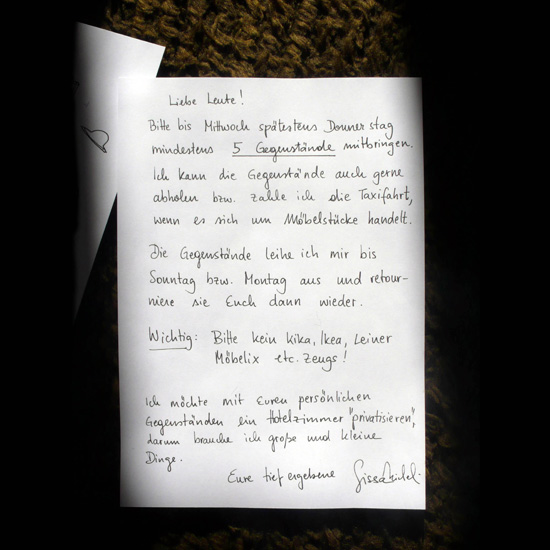 Liebe Leute!
Bitte bis Mittwoch spätestens Donnerstag
mindestens 5 Gegenstände mitbringen.
Ich kann die Gegenstände auch gerne
abholen bzw. zahle ich die Taxifahrt,
wenn es sich um Möbelstücke handelt.
Die Gegenstände leihe ich mir bis
Sonntag bzw. Montag aus und retour-
niere sie Euch dann wieder.
Wichtig: Bitte kein Kika, Ikea, Leiner
Möbelix etc. Zeugs!
Ich möchte mit Euren persönlichen
Gegenständen ein Hotelzimmer "privatisieren",
darum brauche ich große und kleine
Dinge.
Eure tief ergebene